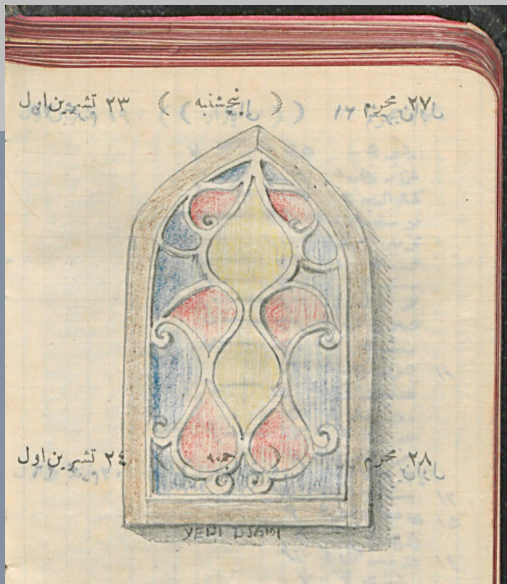 ٢٧ محرم ( پنجشنبه ) ٢٣ تشرین اول
٢٨ محرم ( جمعه ) ٢٤ تشرین اول
YENI DJAMI